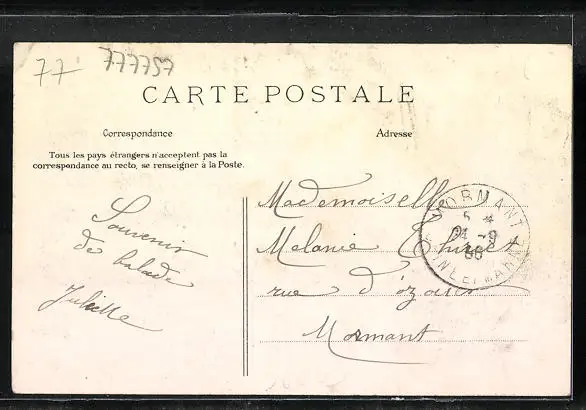 77
777757
CARTE POSTALE
Correspondance
Adresse
Tous les pays étrangers n'acceptent pas la
correspondance au recto, se renseigner à la Poste.
Souvenir
de balade
Juliette
Mademoiselle
Melanie
rue d'Ozouer
Mormant
MORMANT
SEINE-ET-MARNE